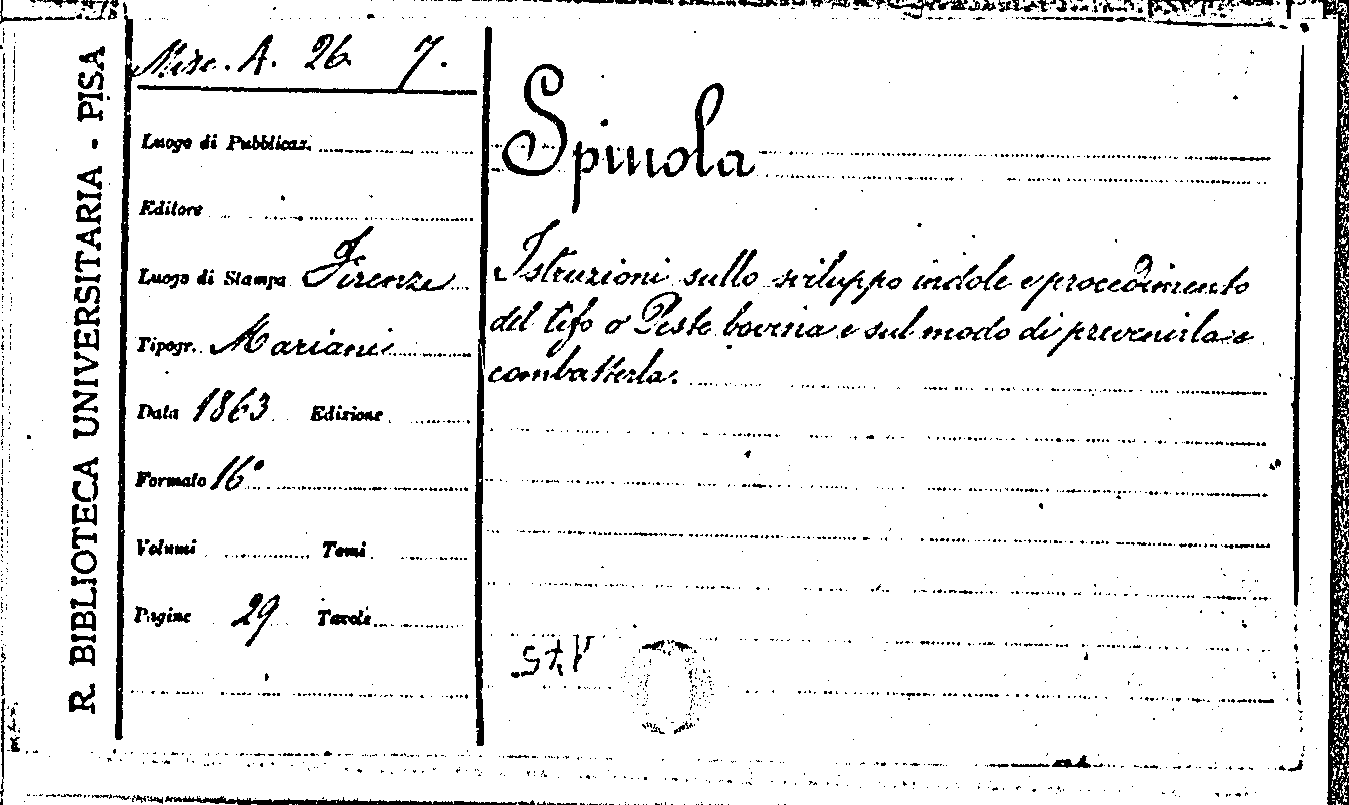 R. BIBLIOTECA UNIVERSITARIA - PISA
Misc. A. 26. 7.
Luogo di Pubblicaz.
Editore
Luogo di Stampa Firenze
Tipogr. Mariani
Data 1863 Edizione
Formato 16°
Volumi Tomi
Pagine 29 Tavole
Spinola
Istruzioni sullo sviluppo indole e procedimento
del tifo o Peste bovina e sul modo di prevenirla e
combatterla.